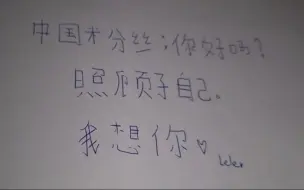 中国米分丝:你好吗?
照顾好自己.
我想你♡